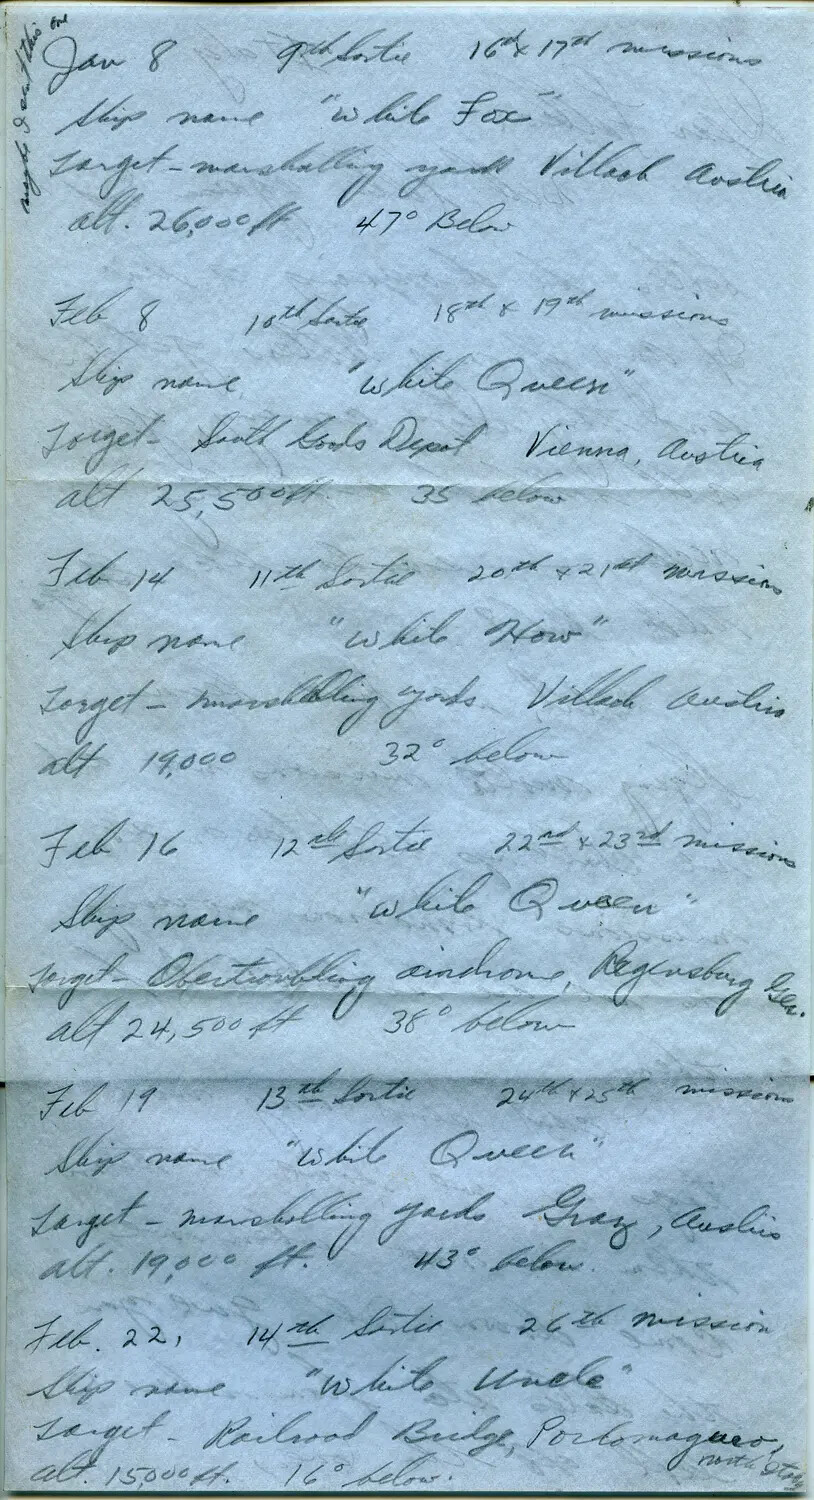 maybe I sent this one
Jan 8 9th Sortie 16th & 17th missions
Ship name "White Fox"
Target - marshalling yards Villach Austria
alt. 26,000 ft 47° Below
Feb 8 10th Sortie 18th & 19th missions
Ship name "White Queen"
Target - South Goods Depot Vienna, Austria
alt 25,500 ft. 35 below
Feb 14 11th Sortie 20th & 21st missions
Ship name "White How"
Target - marshalling yards Villach Austria
alt 19,000 32° below
Feb 16 12th Sortie 22nd & 23rd missions
Ship name "White Queen"
Target - Obertraubling airdrome, Regensburg Ger.
alt 24,500 ft 38° below
Feb 19 13th Sortie 24th & 25th missions
Ship name "White Queen"
Target - marshalling yards Graz, Austria
alt. 19,000 ft. 43° below.
Feb. 22, 14th Sortie 26th mission
Ship name "White Uncle"
Target - Railroad Bridge, Portomaguaro,
north Italy
alt. 15,000 ft. 16° below.